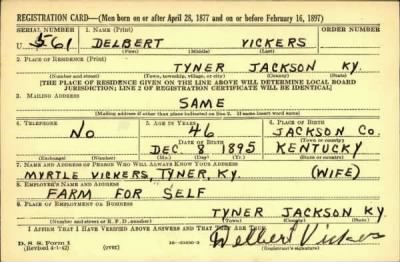 REGISTRATION CARD—(Men born on or after April 28, 1877 and on or before February 16, 1897)
SERIAL NUMBER 1. NAME (Print) ORDER NUMBER
U 561 DELBERT VICKERS
(First) (Middle) (Last)
2. PLACE OF RESIDENCE (Print)
TYNER JACKSON KY.
(Number and street) (Town, township, village, or city) (County) (State)
[THE PLACE OF RESIDENCE GIVEN ON THE LINE ABOVE WILL DETERMINE LOCAL BOARD
JURISDICTION; LINE 2 OF REGISTRATION CERTIFICATE WILL BE IDENTICAL]
3. MAILING ADDRESS
SAME
(Mailing address if other than place indicated on line 2. If same insert word same)
4. TELEPHONE 5. AGE IN YEARS 6. PLACE OF BIRTH
NO 46 JACKSON CO.
DATE OF BIRTH (Town or county)
DEC. 8 1895 KENTUCKY
(Exchange) (Number) (Mo.) (Day) (Yr.) (State or country)
7. NAME AND ADDRESS OF PERSON WHO WILL ALWAYS KNOW YOUR ADDRESS
MYRTLE VICKERS, TYNER, KY. (WIFE)
8. EMPLOYER'S NAME AND ADDRESS
FARM FOR SELF
9. PLACE OF EMPLOYMENT OR BUSINESS
TYNER JACKSON KY
(Number and street or R. F. D. number) (Town) (County) (State)
I AFFIRM THAT I HAVE VERIFIED ABOVE ANSWERS AND THAT THEY ARE TRUE.
D. S. S. Form 1
(Revised 4-1-42) (over) Delbert Vickers
(Registrant's signature)